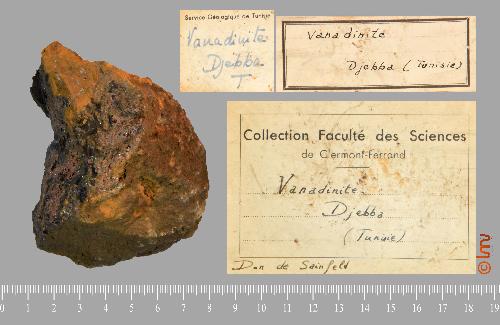 Service Géologique de Tunisie
Vanadinite
Djebba
T
Vanadinite
Djebba (Tunisie)
Collection Faculté des Sciences
de Clermont-Ferrand
Vanadinite
Djebba
(Tunisie)
Don de Sainfeld
0 1 2 3 4 5 6 7 8 9 10 11 12 13 14 15 16 17 18 19